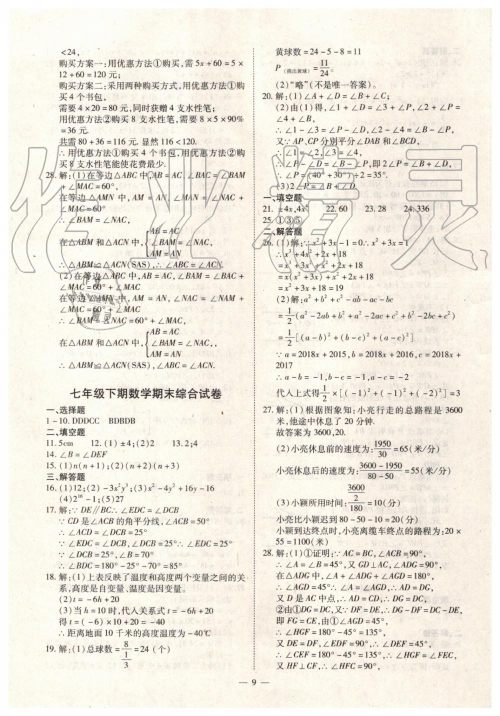 <24,
购买方案一:用优惠方法①购买,需5x+60=5×
12+60=120元;
购买方案二:采用两种购买方式,用优惠方法①购
买4个书包,
需要4×20=80元,同时获赠4支水性笔;
用优惠方法②购买8支水性笔,需要8×5×90%
=36元.
共需80+36=116元.显然116<120.
∴用优惠方法①购买4个书包,用优惠方法②购
买8支水性笔能使花费最少.
28.解:(1)在等边△ABC中,AB=AC,∠BAC=∠BAM
+∠MAC=60°,
在等边△AMN中,AM=AN,∠MAN=∠MAC+
∠CAN=60°
∴∠BAM=∠NAC,
在△ABM和△ACN中,{AB=AC
∠BAM=∠NAC
AM=AN
∴△ABM≌△ACN(SAS),∴∠ABC=∠ACN.
(2)在等边△ABC中,AB=AC,∠BAC=60°,∠BAM
=∠BAC+∠MAC=60°+∠MAC
在等边△AMN中,AM=AN,∠NAC=∠NAM+
∠MAC=60°+∠MAC
∴∠BAM=∠NAC=60°+∠MAC,
在△ABM和△ACN中,{AB=AC
∠BAM=∠NAC
AM=AN
∴△ABM≌△ACN(SAS),∴∠ABC=∠ACN.
七年级下期数学期末综合试卷
一、选择题
1-10.DDDCC BDBDB
二、填空题
11.5cm 12.(1)±4;(2)2 13.2;4
14.∠B=∠DEF
15.(1)n(n+1);(2)(n+2)(n+3)
三、解答题
16.(1)12;(2)-3x²y³;(3)-4x²-4y²+16y-16
17.解:∵DE∥BC∴∠EDC=∠DCB
∵CD是∠ACB的角平分线,∠ACB=50°
∴∠ACD=∠DCB=25°
∴∠EDC=∠DCB,∠DCB=25°
∴∠EDC=∠DCB=25°,∠B=70°
∴∠BDC=180°-25°-70°=85°
18.解:(1)上表反映了温度和高度两个变量之间的关
系,高度是自变量,温度是因变量.
(2)t=-6h+20
(3)当h=10时,代入关系式t=-6h+20
得t=-6×10+20=-40
∴距离地面10千米的高度温度为-40℃
19.解:(1)总球数=8/(1/3)=24(个)
黄球数=24-5-8=11
P(摸出黄球)=11/24
(2)“略”(不是唯一答案).
20.解:(1)∠A+∠D=∠B+∠C;
(2)由(1)得,∠1+∠D=∠3+∠P,∠2+∠P=
∠4+∠B,
∴∠1-∠3=∠P-∠D,∠2-∠4=∠B-∠P,
又∵AP,CP分别平分∠DAB和∠BCD,
∴∠1=∠2,∠3=∠4,
∴∠P-∠D=∠B-∠P,即2∠P=∠B+∠D,
∴∠P=(40°+30°)÷2=35°.
(3)2∠P=∠B+∠D.
一、填空题
22.60 23.28 24.336
25.①③⑤
二、解答题
26.(1)解:∵x²+3x-1=0∴x²+3x=1
∴x³+4x²+2x+18
=x³+3x²+x²+2x+18
=x(x²+3x)+x²+2x+18
=x+x²+2x+18
=x²+3x+18
=1+18
=19
(2)解:a²+b²+c²-ab-ac-bc
=1/2(a²-2ab+b²+a²-2ac+c²+b²-2bc+c²)
=1/2[(a-b)²+(b-c)²+(a-c)²]
∵a=2018x+2015,b=2018x+2016,c=2018x+
2017
∴a-b=-1,b-c=-1,a-c=-2
代入上式得1/2×[(-1)²+(-1)²+(-2)²]=3
27.解:(1)根据图象知:小亮行走的总路程是3600
米,他途中休息了20分钟.
故答案为3600,20.
(2)小亮休息前的速度为:1950/30=65(米/分)
小亮休息后的速度为:(3600-1950)/(80-50)=55(米/分)
(3)小颖所用时间:(3600/2)/180=10(分)
小亮比小颖迟到80-50-10=20(分)
小颖到达终点时,小亮离缆车终点的路程为:20×
55=1100(米)
28.解:(1)①证明:∵AC=BC,∠ACB=90°,
∴∠A=∠B=45°,又GD⊥AC,∴∠ADG=90°,
在△ADG中,∠A+∠ADG+∠AGD=180°,
∴∠AGD=45°∴∠A=∠AGD,∴AD=DG,
又D是AC中点,∴AD=CD,∴DG=DC;
②由①DG=DC,又∵DF=DE,∴DG-DF=DC-DE,
即FG=CE,由①∠AGD=45°,
∴∠HGF=180°-45°=135°,
又DE=DF,∠EDF=90°,∴∠DEF=45°,
∴∠CEF=180°-45°=135°,∴∠HGF=∠FEC,
又HF⊥CF,∴∠HFC=90°,
— 9 —